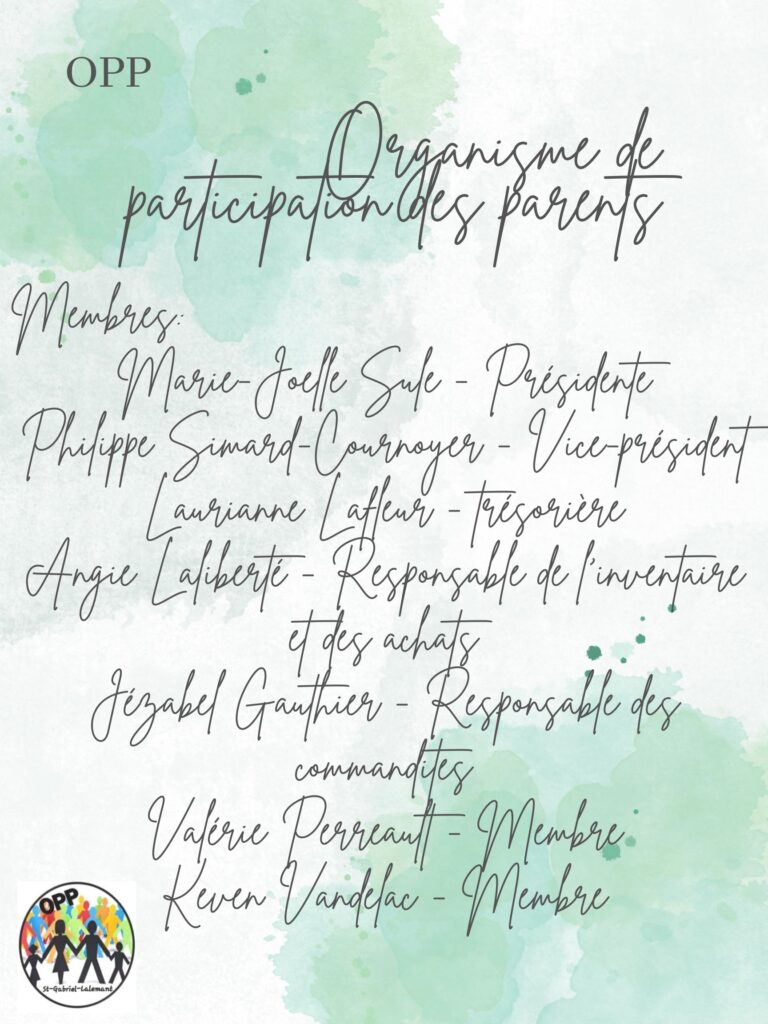 OPP
Organisme de
participation des parents
Membres:
Marie-Joelle Sule - Présidente
Philippe Simard-Cournoyer - Vice-président
Laurianne Lafleur - trésorière
Angie Laliberté - Responsable de l'inventaire
et des achats
Jézabel Gauthier - Responsable des
commandites
Valérie Perreault - Membre
Keven Vandelac - Membre
OPP
St-Gabriel-Lalemant